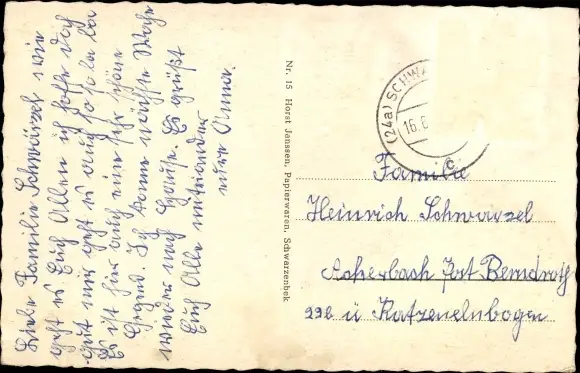 Liebe Familie Schwarzel wie
geht es Euch Allen ich hoffe doch
gut mir geht es auch so so la la
Es ist hier auch eine sehr schöne
Gegend. Ich komme nächste Woche
wieder nach Hause. Es grüßt
Euch Alle miteinander
eure Anna.
Nr. 15 Horst Janssen, Papierwaren, Schwarzenbek
(24a) SCHWA
16.
c
Familie
Heinrich Schwarzel
Post Berndroth
ü Katzenelnbogen